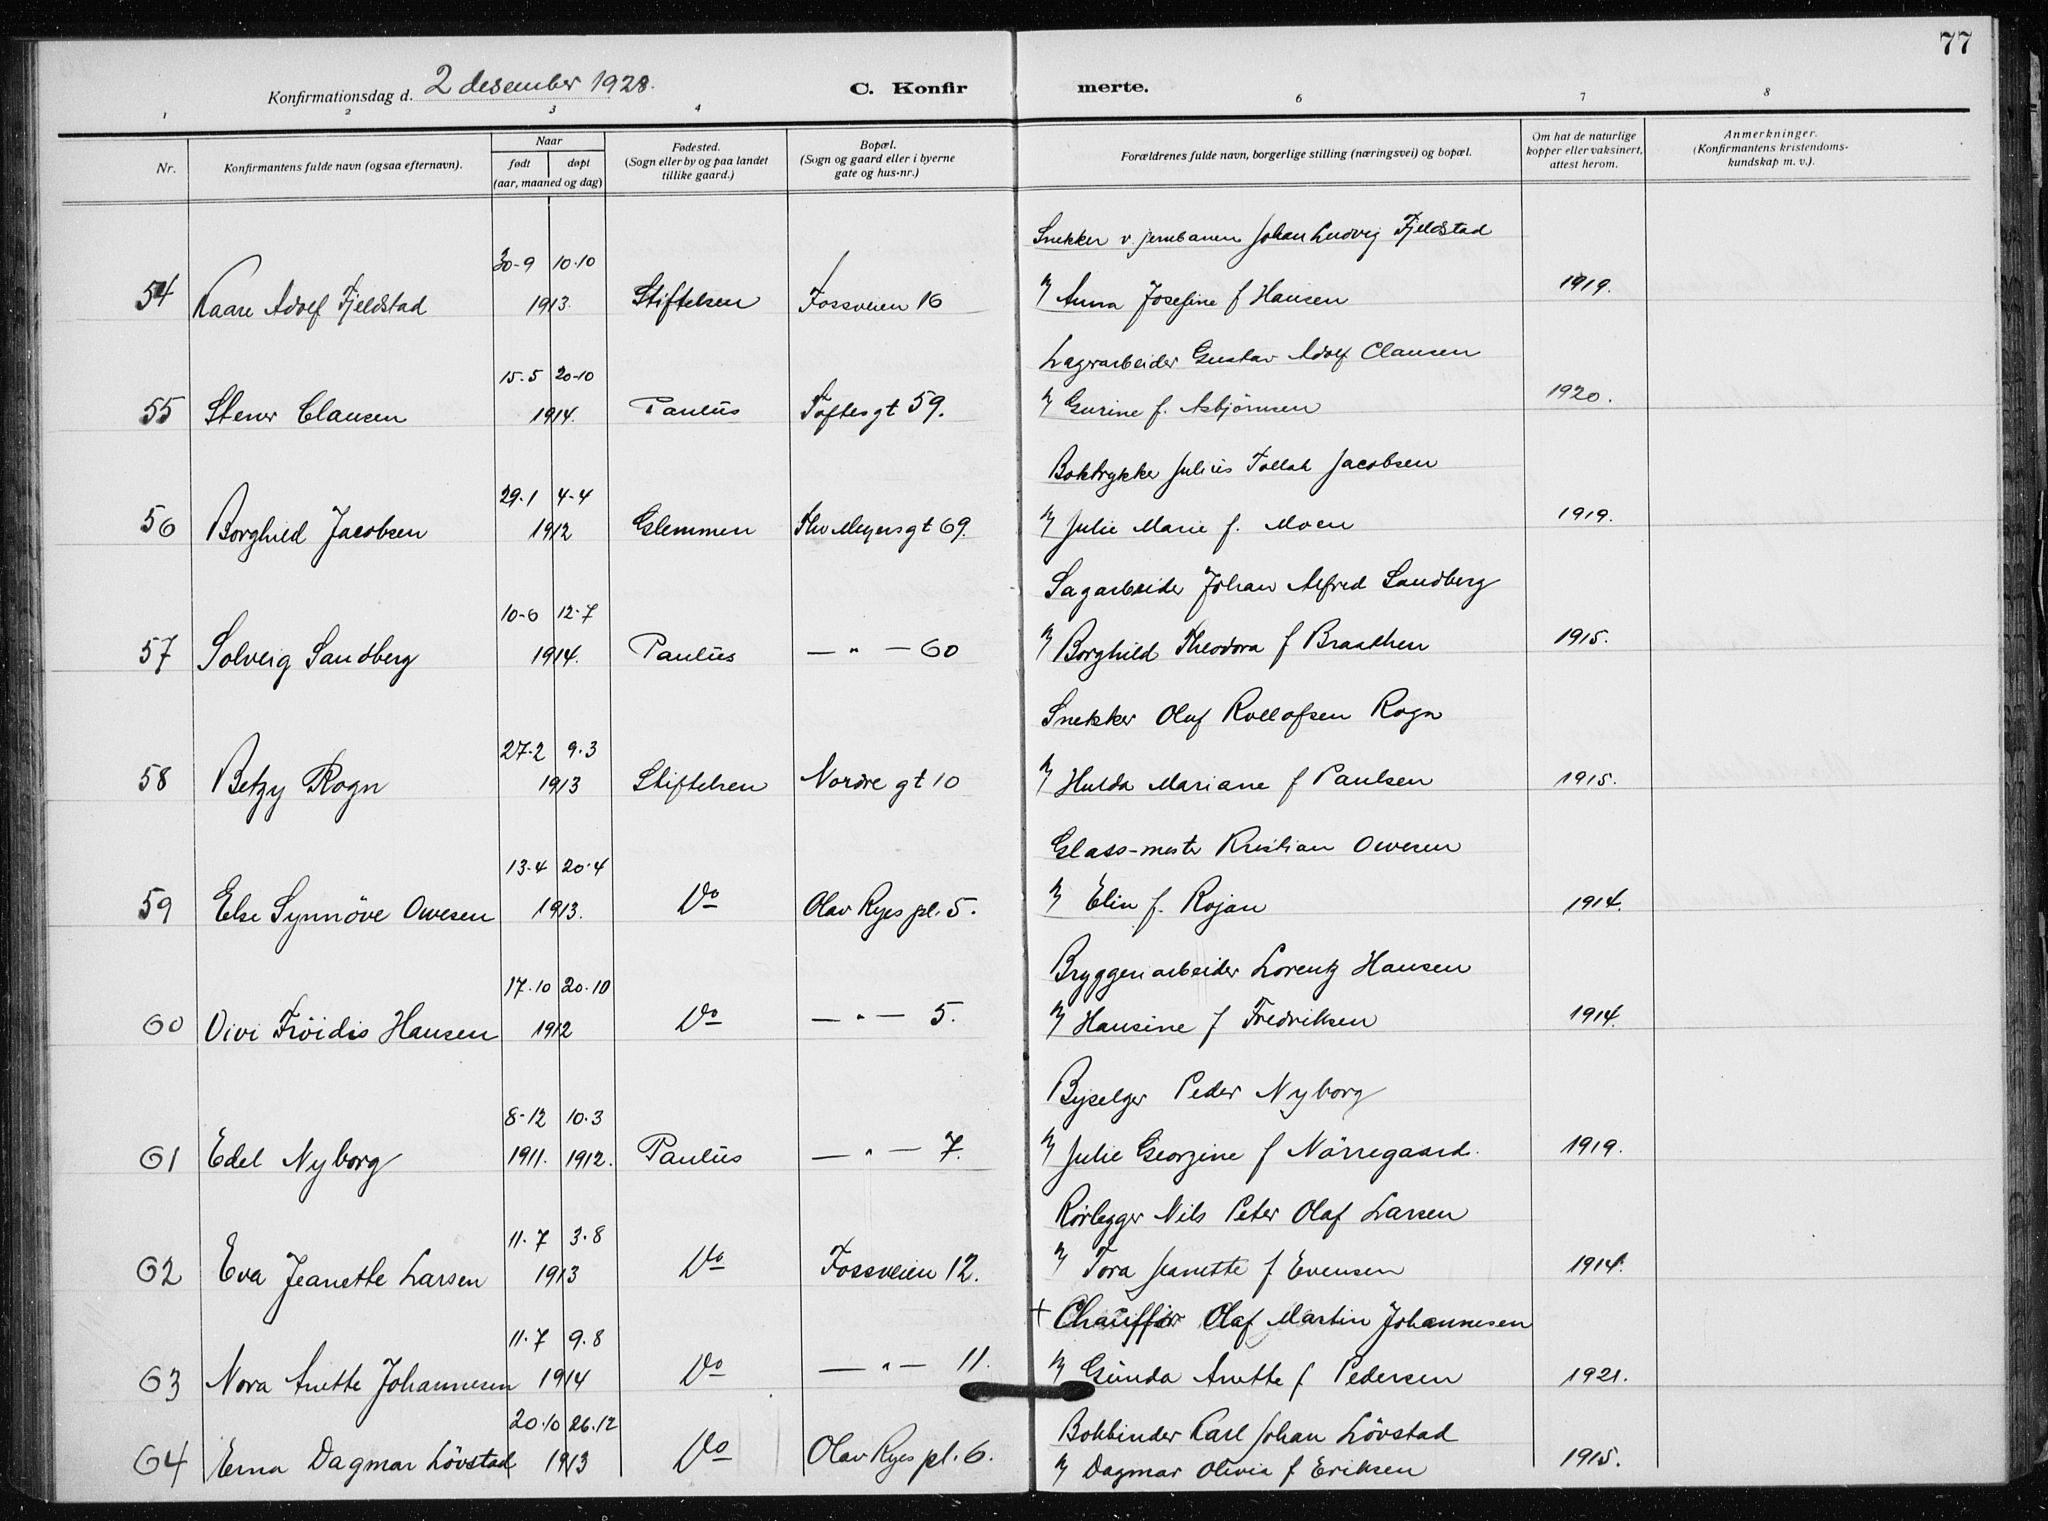 77
Konfirmationsdag d. 2 desember 1928. C. Konfir merte.
1 2 3 4 6 7 8
Nr. Konfirmantens fulde navn (ogsaa efternavn). Naar født døpt (aar, maaned og dag) Fødested. (Sogn eller by og paa landet tillike gaard.) Bopæl. (Sogn og gaard eller i byerne gate og hus-nr.) Forældrenes fulde navn, borgerlige stilling (næringsvei) og bopæl. Om hat de naturlige kopper eller vaksinert, attest herom. Anmerkninger. (Konfirmantens kristendoms-kundskap m. v.).
Snekker v. jernbanen Johan Ludvig Fjeldstad
30-9 10.10
54 Kaare Adolf Fjeldstad 1913. Stiftelsen Fossveien 16 Anna Josefine f Hansen 1919.
Lagerarbeider Gustav Adolf Clausen
15.5 20-10
55 Stener Clausen 1914. Paulus Toftesgt 59. Gurine f. Asbjørnsen 1920.
Boktrykker Julius Tollak Jacobsen
29.1 4-4
56 Borghild Jacobsen 1912 Glemmen Thv Meyersgt 69. Julie Marie f. Moen 1919.
Sagarbeider Johan Alfred Sandberg
10-6 12-7
57 Solveig Sandberg 1914. Paulus — " — 60 Borghild Theodora f Braathen 1915.
Snekker Olaf Rollofsen Rogn
27-2 9.3
58 Betzy Rogn 1913 Stiftelsen Nordre gt 10 Hulda Mariane f Paulsen 1915.
Glass-mester Kristian Owesen
13.4 20.4
59 Else Synnöve Owesen 1913. Do Olav Ryes pl. 5. Elin f. Rojan 1914.
Bryggeriarbeider Lorentz Hansen
17.10 20.10
60 Vivi Fröidis Hansen 1912 Do — " — 5. Hansine f Fredriksen 1914.
Byselger Peder Nyborg
8-12 10.3
61 Edel Nyborg 1911. 1912. Paulus — " — 7. Julie Georgine f Nörregaard. 1919.
Rörlegger Nils Peter Olaf Larsen
11.7 3.8
62 Eva Jeanette Larsen 1913 Do Fossveien 12. Tora Jeanette f Evensen 1914.
+ Chaufför Olaf Martin Johannesen
11.7 9.8
63 Nora Anette Johannesen 1914 Do — " — 11. Gunda Anette f Pedersen 1921.
20.10 26.12 Bokbinder Karl Johan Lövstad
64 Erna Dagmar Lövstad 1913 Do Olav Ryes pl. 6. Dagmar Olivia f Eriksen 1915.